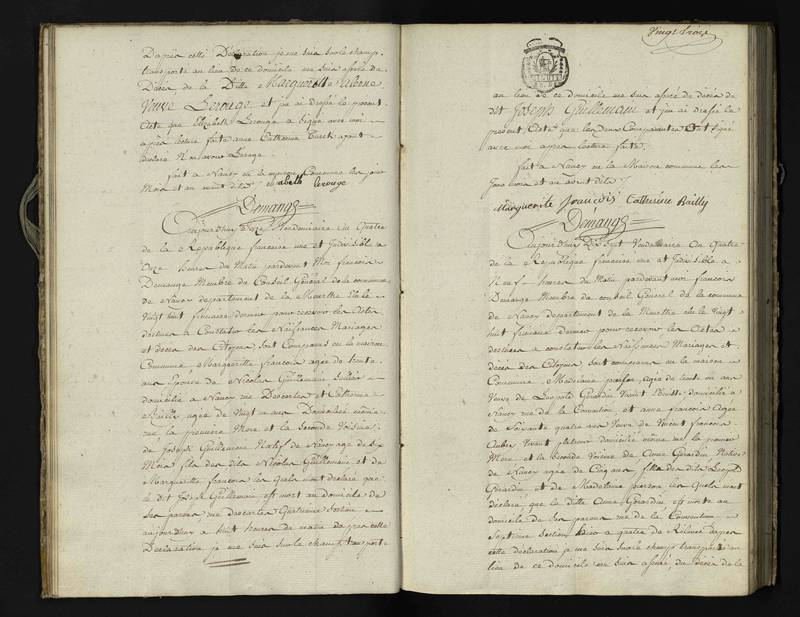 D'après cette Déclaration je me suis sur le champ
transporté au lieu de ce domicile me suis assuré du
Décès de la Ditte Marguerite
Veuve Lerouge et j'ai dressé le présent
Acte que Elizabeth Lerouge a signé avec moi
après lecture faite anne Catherine Turck ayant
déclaré N'en avoir l'usage
fait a Nancy en la maison Commune les jour
Mois et an avant dits Elisabeth lerouge
Demange
Aujourd'huy Vendemiaire an Quatre
de la République francaise une et Indivisible a
Onze heures du Matin pardevant Moi francois
Demange Membre du Conseil Général de la commune
de Nancy departement de la Meurthe Elu le
Vingt huit frimaire dernier pour recevoir les Actes
destinés a Constater les Naissances Mariages
et Décès des Citoyens, sont Comparues en la maison
Commune Marguerite francois agée de trente
ans Epouse de Nicolas Guillemain
domiciliée a Nancy rue Descartes et Catherine
Bailly agée de Vingt ans Domiciliée même
rue, la première Mere et la seconde Voisine
de Joseph Guillemain Natif de Nancy agé de six
Mois fils des dits Nicolas Guillemain et de
Marguerite francois les quels m'ont declaré que
le dit Joseph Guillemain est mort au domicile de
ses parens, rue descartes Quatrieme Section
aujourd'huy a huit heures du matin d'après cette
Déclaration je me suis sur le champ transporté
Vingt trois
au lieu de ce domicile me suis assuré du décès du
dit Joseph Guillemain et j'en ai dressé le
présent Acte que les deux Comparantes ont signé
avec moi après lecture faite
fait a Nancy en la Maison commune les
Jour mois et an avant dits
Marguerite francois Catherine Bailly
Demange
Aujourd'huy Dix Sept Vendemiaire an Quatre
de la République francaise une et Indivisible a
Neuf heures du Matin pardevant moi francois
Demange Membre du conseil Général de la commune
de Nancy departement de la Meurthe elu le Vingt
huit frimaire dernier pour recevoir les Actes
destinés a constater les Naissances Mariages et
décès des Citoyens, sont comparues en la maison
Commune Madelaine pierson, agée de trente ans
Veuve de Léopold Gérardin Vivant domiciliée a
Nancy rue de la Convention et anne francois agée
de Soixante quatre ans Veuve de Vincent francois
Aubry Vivant platreur domiciliée même rue la premiere
Mere et la seconde Voisine de Anne Gérardin Native
de Nancy agée de Cinq ans fille des dits Léopold
Gérardin et de Madelaine pierson les quels m'ont
déclaré que la ditte Anne Gérardin est morte au
domicile de ses parens rue de la Convention
Septieme Section hier a quatre de Relevée d'après
cette déclaration je me suis sur le champ transporté au
lieu de ce domicile me suis assuré du décès de la